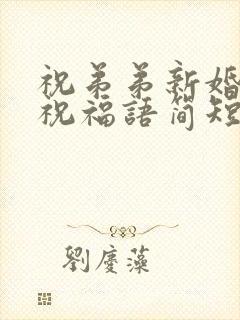 祝弟弟新婚
祝福語简短
劉慶藻